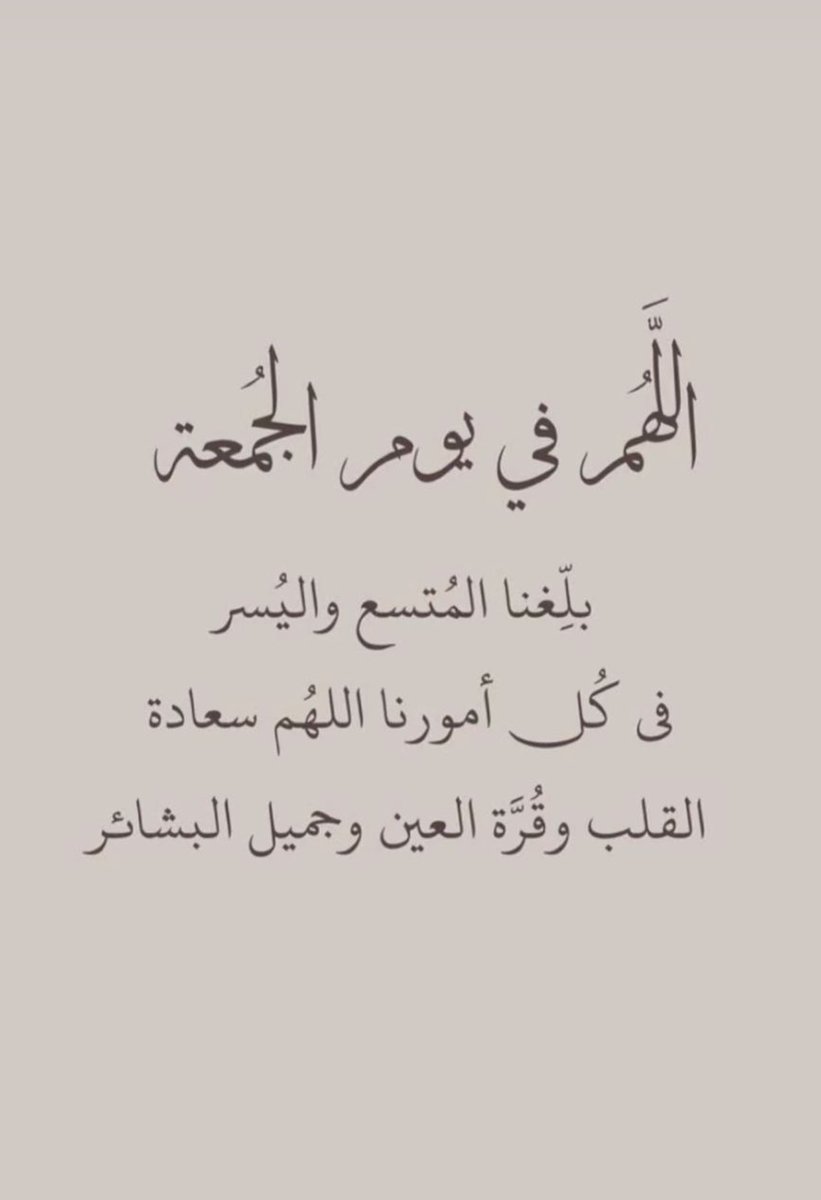 اللَّهُم في يوم الجُمعة
بلِّغنا المُتسع واليُسر
فى كُل أمورنا اللهُم سعادة
القلب وقُرَّة العين وجميل البشائر